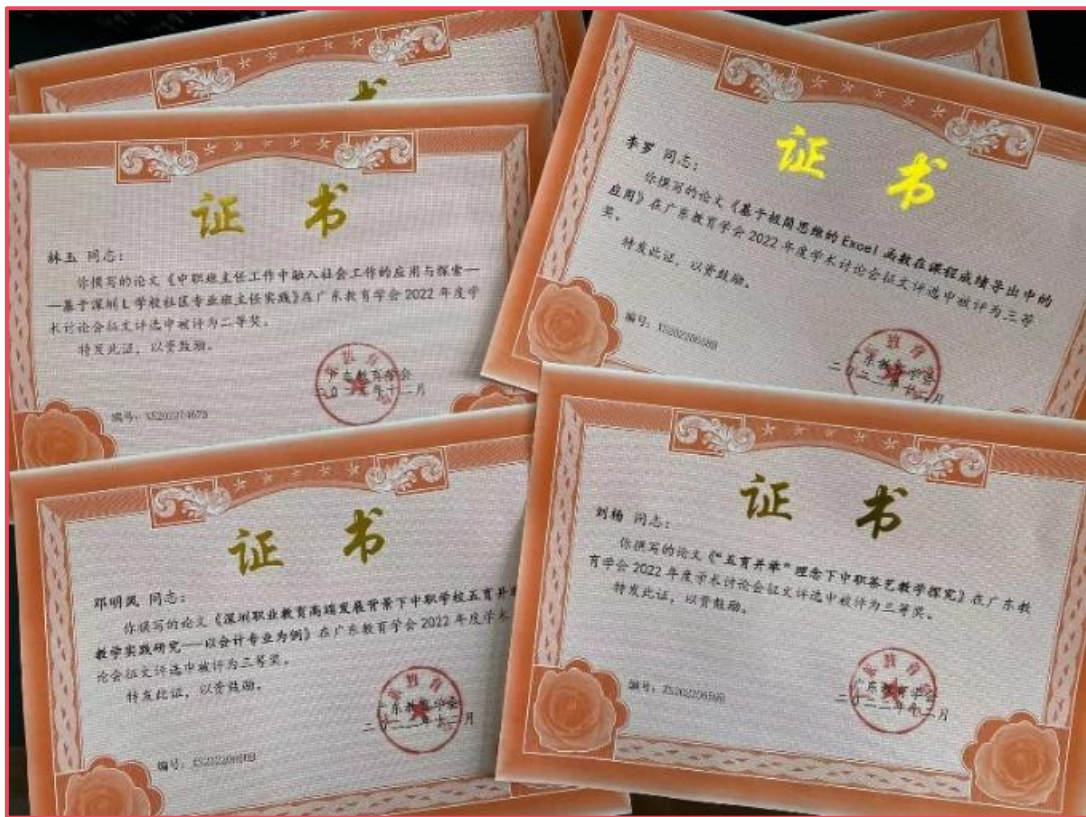 书
证 书
林玉 同志：
你撰写的论文《中职班主任工作中融入社会工作的应用与探索—
—基于深圳L学校社区专业班主任实践》在广东教育学会2022年度学
术讨论会征文评选中被评为二等奖。
特发此证，以资鼓励。
广东教育学会
二〇二二年十二月
编号：
证 书
李罗 同志：
你撰写的论文《基于极简思维的Excel函数在课程成绩导出中的
应用》在广东教育学会2022年度学术讨论会征文评选中被评为三等
奖。
特发此证，以资鼓励。
广东教育学会
二〇二二年十二月
编号：
证 书
邓明凤 同志：
你撰写的论文《深圳职业教育高端发展背景下中职学校五育并
教学实践研究——以会计专业为例》在广东教育学会2022年度学术
论会征文评选中被评为三等奖。
特发此证，以资鼓励。
广东教育学会
二〇二二年十二月
编号：
证 书
刘杨 同志：
你撰写的论文《“五育并举”理念下中职茶艺教学探究》在广东教
育学会2022年度学术讨论会征文评选中被评为三等奖。
特发此证，以资鼓励。
广东教育学会
二〇二二年十二月
编号：